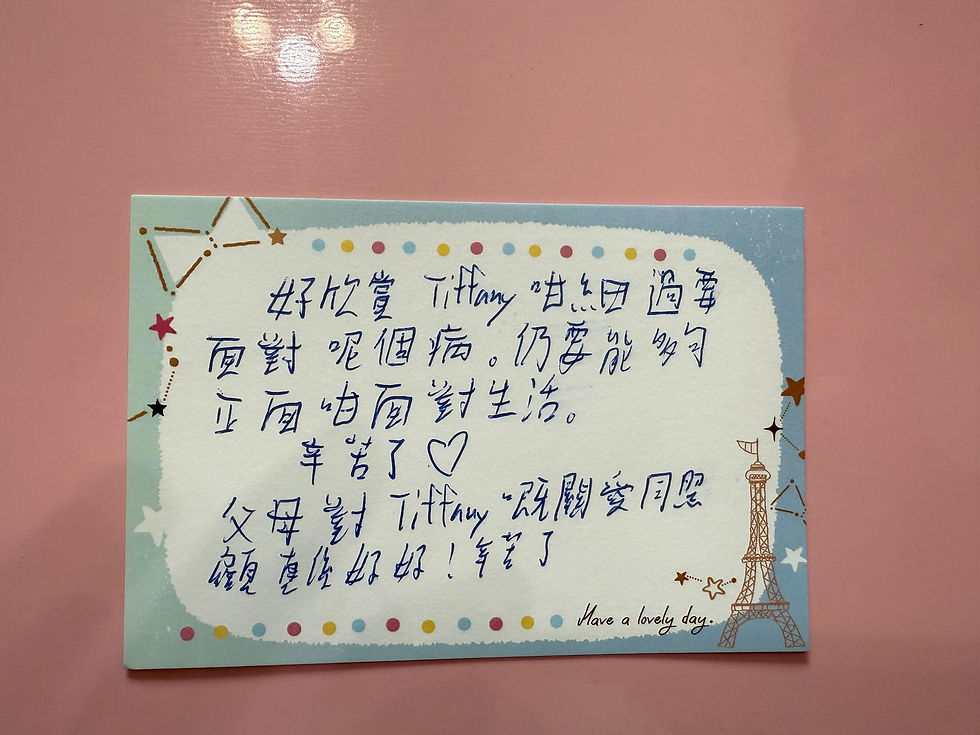 好欣賞 Tiffany 咁細過要
面對 呢個病。仍要能夠
正面咁面對生活。
辛苦了♡
父母 對 Tiffany 嘅關愛同照
顧真係好好！辛苦了
Have a lovely day.